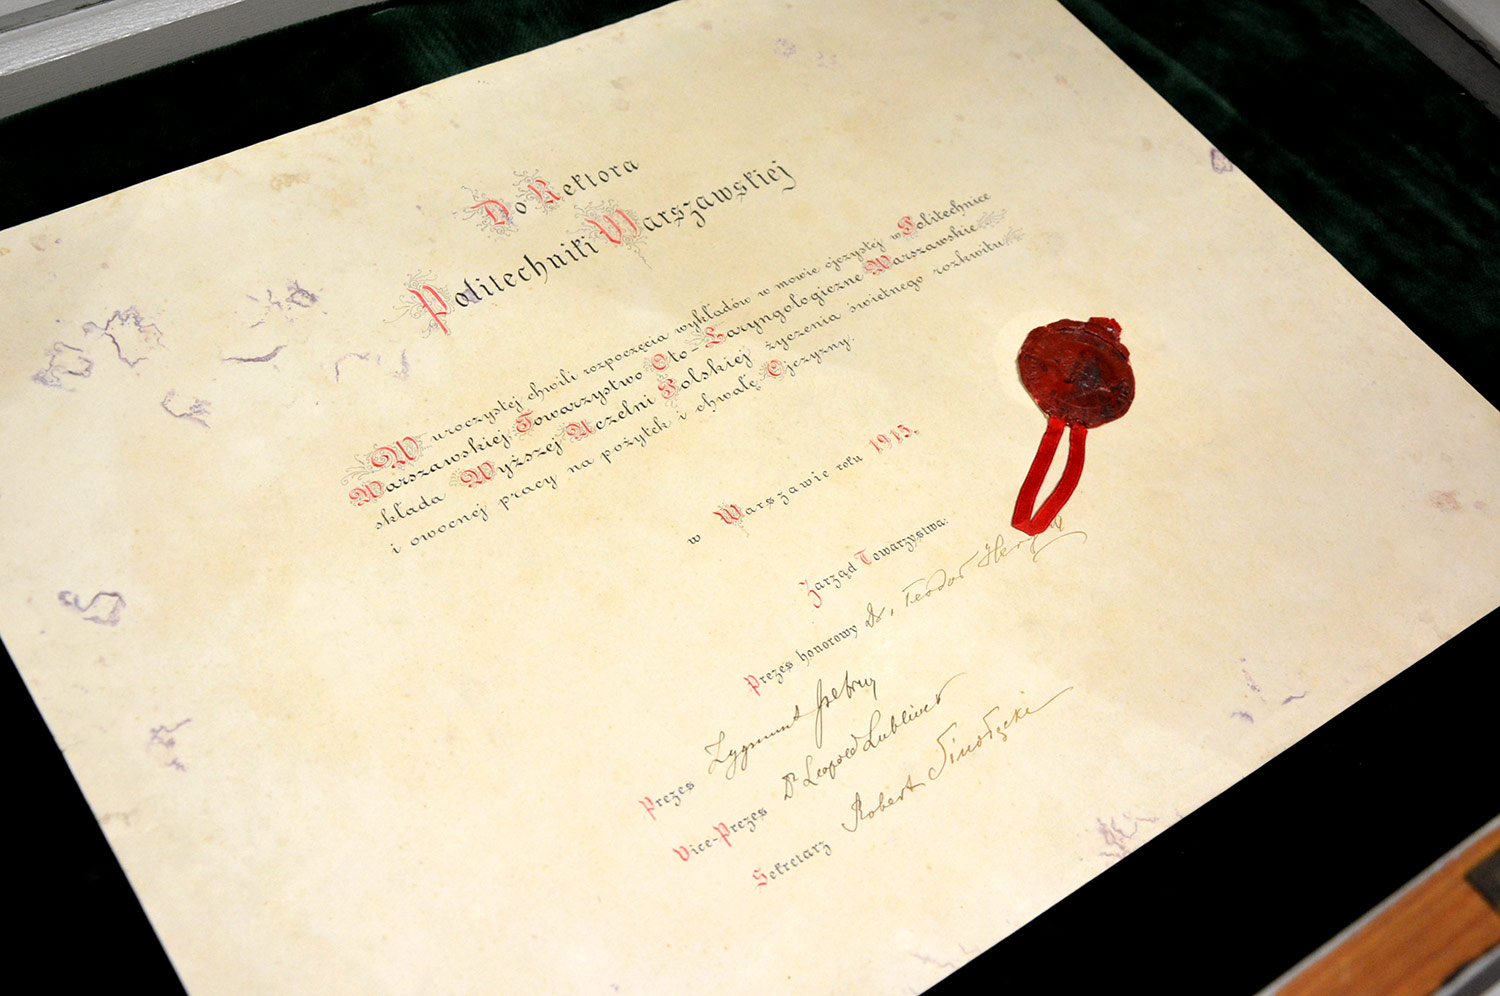 Do Rektora
Politechniki Warszawskiej
W uroczystej chwili rozpoczęcia wykładów w mowie ojczystej w Politechnice
Warszawskiej Towarzystwo Oto-Laryngologiczne Warszawskie
składa Wyższej Uczelni Polskiej życzenia świetnego rozkwitu
i owocnej pracy na pożytek i chwałę Ojczyzny.
w Warszawie roku 1915.
Zarząd Towarzystwa:
Prezes honorowy Dr. Teodor
Prezes Zygmunt
Vice-Prezes Dr Leopold Lubliner
Sekretarz Robert